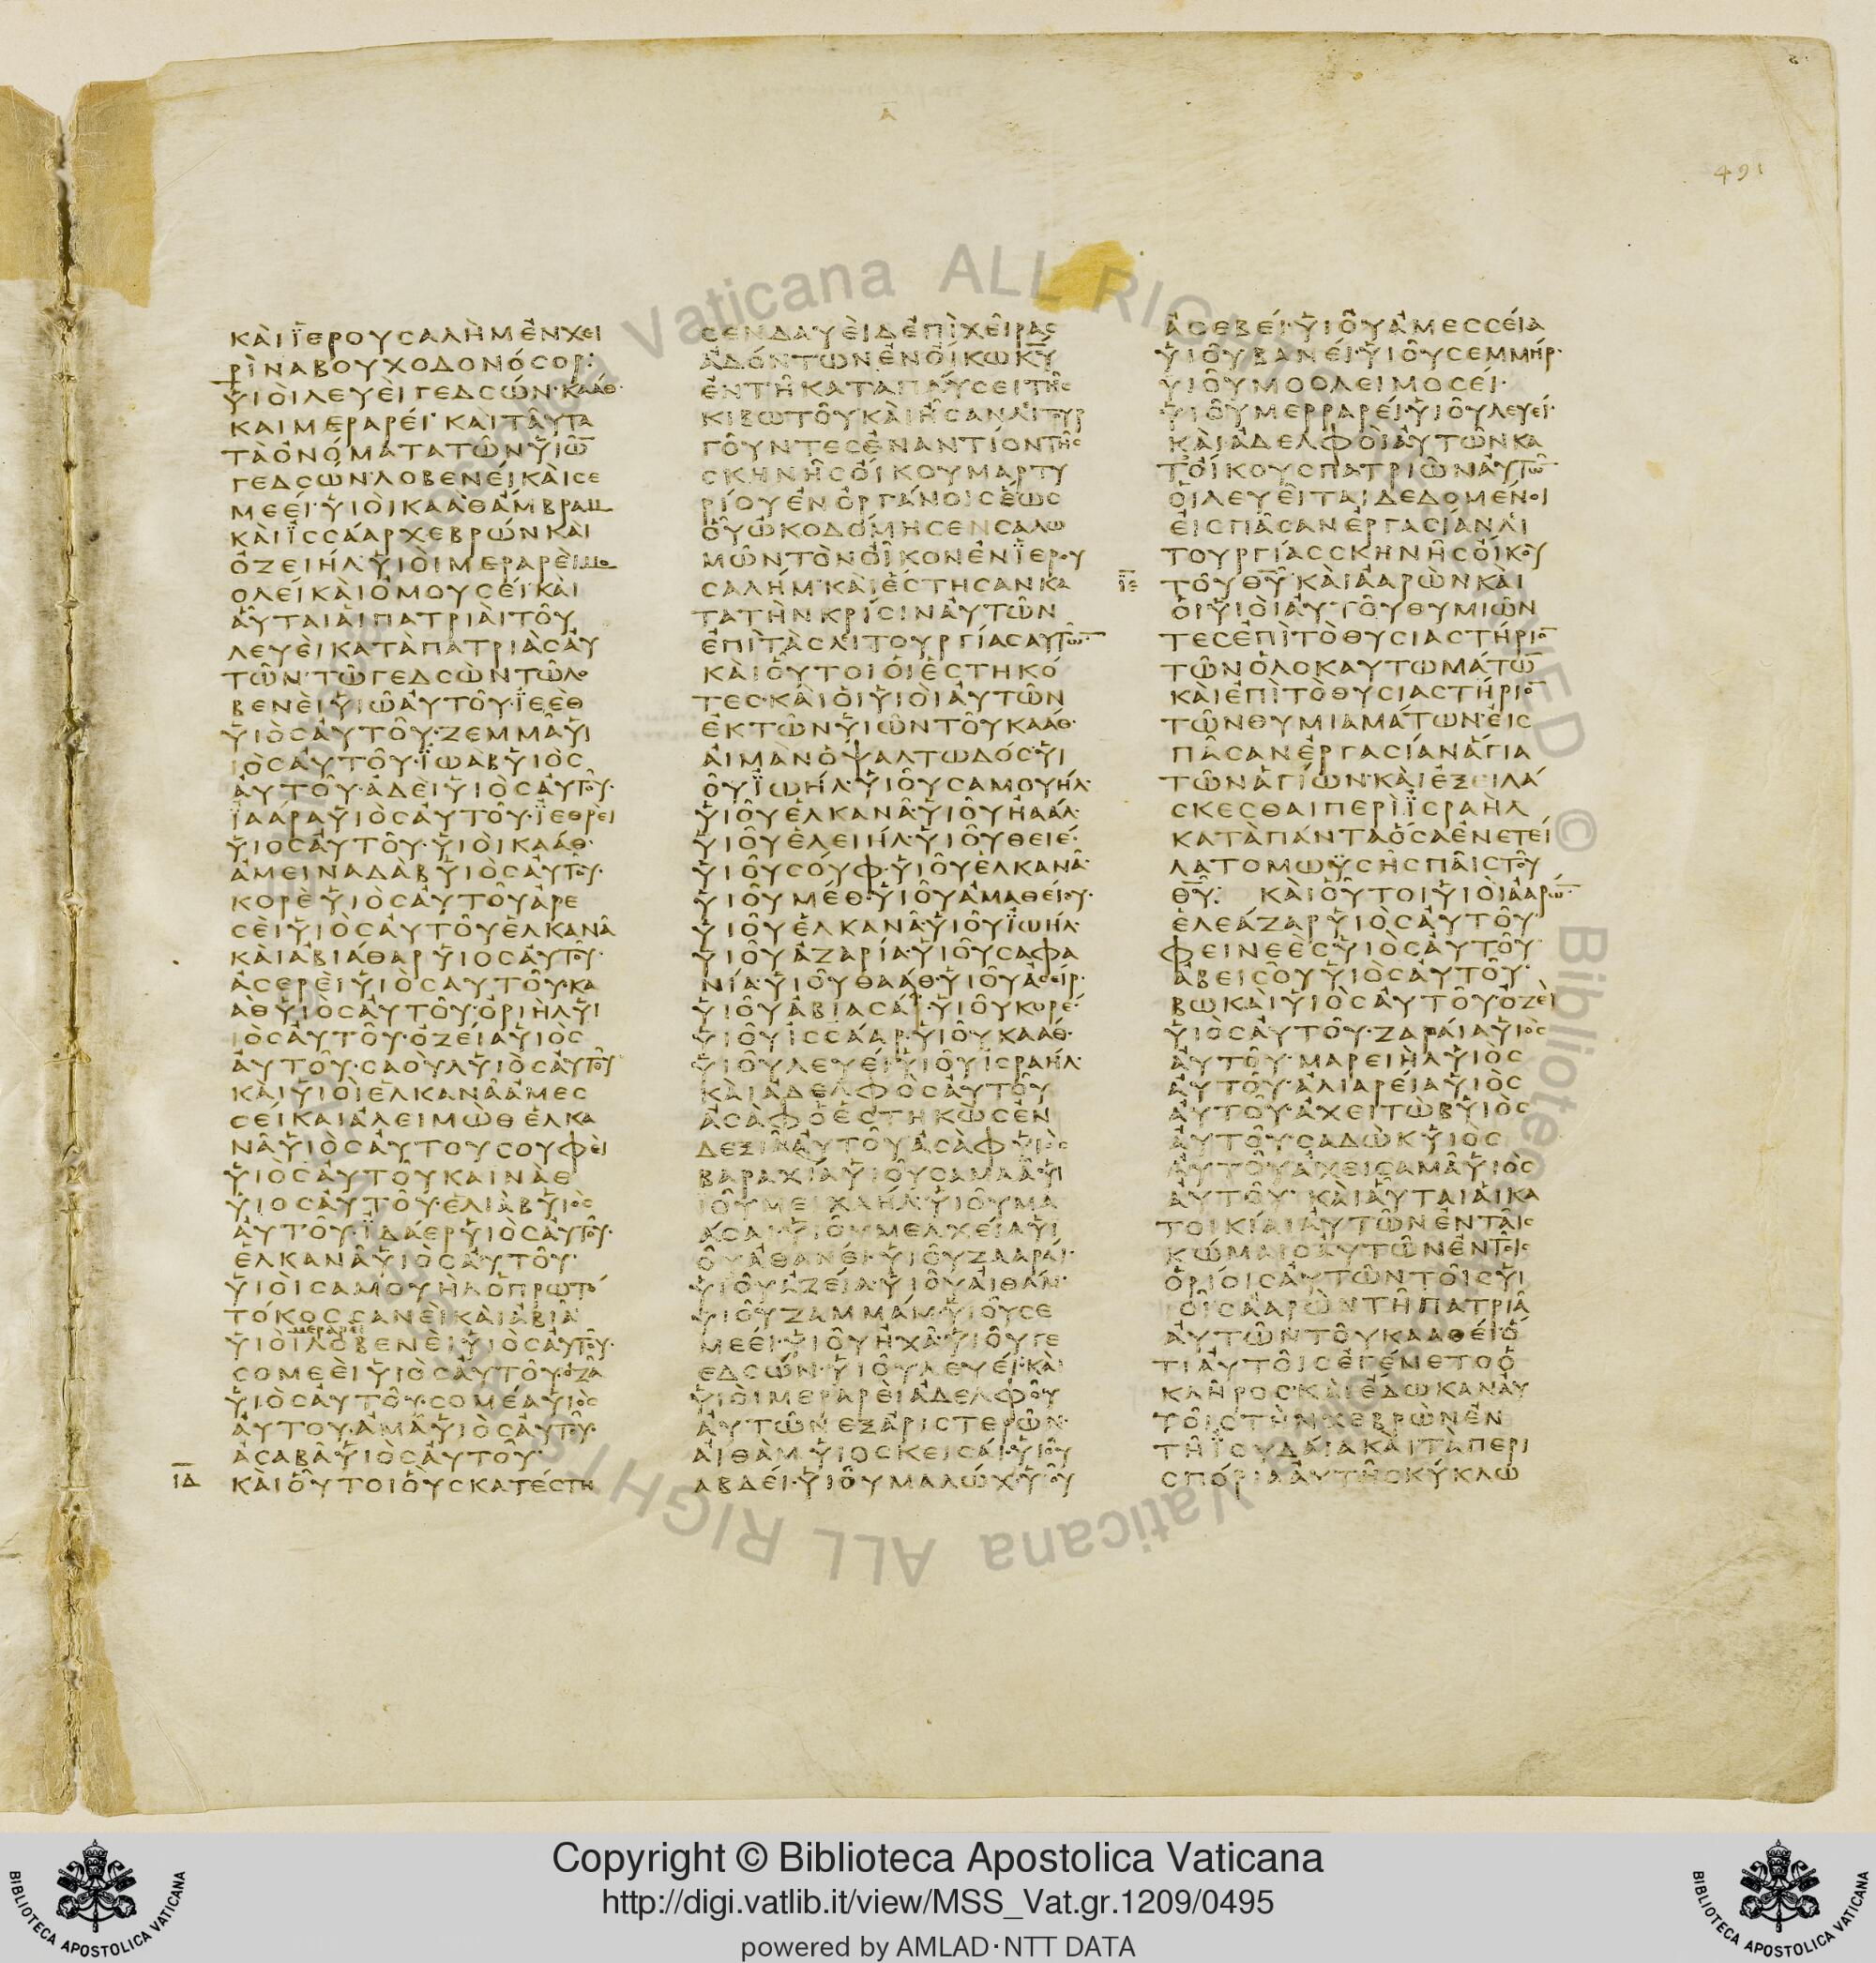 491
ΚΑΙ ΪΕΡΟΥΣΑΛΗΜ ΕΝ ΧΕΙ
ΡΙ ΝΑΒΟΥΧΟΔΟΝΟΣΟΡ:
ΥΙΟΙ ΛΕΥΕΙ ΓΕΔΣΩΝ· ΚΑΑΘ·
ΚΑΙ ΜΕΡΑΡΕΙ· ΚΑΙ ΤΑΥΤΑ
ΤΑ ΟΝΟΜΑΤΑ ΤΩΝ ΥΙΩ̅
ΓΕΔΣΩΝ· ΛΟΒΕΝΕΙ ΚΑΙ ΣΕ
ΜΕΕΙ· ΥΙΟΙ ΚΑΑΘ ΑΜΒΡΑΜ
ΚΑΙ ΪΣΣΑΑΡ ΧΕΒΡΩΝ ΚΑΙ
ΟΖΕΙΗΛ· ΥΙΟΙ ΜΕΡΑΡΕΙ ΜΟ
ΟΛΕΙ ΚΑΙ Ο ΜΟΥΣΕΙ· ΚΑΙ
ΑΥΤΑΙ ΑΙ ΠΑΤΡΙΑΙ ΤΟΥ
ΛΕΥΕΙ ΚΑΤΑ ΠΑΤΡΙΑΣ ΑΥ
ΤΩΝ· ΤΩ ΓΕΔΣΩΝ ΤΩ ΛΟ
ΒΕΝΕΙ ΥΙΩ ΑΥΤΟΥ· ΪΕΕΘ
ΥΙΟΣ ΑΥΤΟΥ· ΖΕΜΜΑ ΥΙ
ΙΟΣ ΑΥΤΟΥ· ΪΩΑΒ ΥΙΟΣ
ΑΥΤΟΥ· ΑΔΕΙ ΥΙΟΣ ΑΥΤΟΥ·
ΪΑΑΡΑ ΥΙΟΣ ΑΥΤΟΥ· ΪΕΘΡΕΙ
ΥΙΟΣ ΑΥΤΟΥ· ΥΙΟΙ ΚΑΑΘ·
ΑΜΕΙΝΑΔΑΒ ΥΙΟΣ ΑΥΤΟΥ·
ΚΟΡΕ ΥΙΟΣ ΑΥΤΟΥ ΑΡΕ
ΣΕΙ ΥΙΟΣ ΑΥΤΟΥ ΕΛΚΑΝΑ
ΚΑΙ ΑΒΙΑΘΑΡ ΥΙΟΣ ΑΥΤΟΥ·
ΑΣΕΡΕΙ ΥΙΟΣ ΑΥΤΟΥ· ΚΑ
ΑΘ ΥΙΟΣ ΑΥΤΟΥ· ΟΡΙΗΛ ΥΙ
ΙΟΣ ΑΥΤΟΥ· ΟΖΕΙΑ ΥΙΟΣ
ΑΥΤΟΥ· ΣΑΟΥΛ ΥΙΟΣ ΑΥΤΟΥ
ΚΑΙ ΥΙΟΙ ΕΛΚΑΝΑ ΑΜΕΣ
ΣΕΙ ΚΑΙ ΑΛΕΙΜΩΘ ΕΛΚΑ
ΝΑ ΥΙΟΣ ΑΥΤΟΥ ΣΟΥΦΕΙ
ΥΙΟΣ ΑΥΤΟΥ ΚΑΙΝΑΕ
ΥΙΟΣ ΑΥΤΟΥ· ΕΛΙΑΒ ΥΙΟΣ
ΑΥΤΟΥ· ΪΔΑΕΡ ΥΙΟΣ ΑΥΤΟΥ·
ΕΛΚΑΝΑ ΥΙΟΣ ΑΥΤΟΥ·
ΥΙΟΙ ΣΑΜΟΥΗΛ Ο ΠΡΩΤΟ
ΤΟΚΟΣ ΣΑΝΕΙ ΚΑΙ ΑΒΙΑ·
ΜΕΡΑΡΕΙ
ΥΙΟΙ ΛΟΒΕΝΕΙ ΥΙΟΣ ΑΥΤΟΥ·
ΣΟΜΕΕΙ ΥΙΟΣ ΑΥΤΟΥ· ΟΖΑ
ΥΙΟΣ ΑΥΤΟΥ· ΣΟΜΕΑ ΥΙΟΣ
ΑΥΤΟΥ· ΑΜΑ ΥΙΟΣ ΑΥΤΟΥ·
ΑΣΑΒΑ ΥΙΟΣ ΑΥΤΟΥ·
ΙΔ ΚΑΙ ΟΥΤΟΙ ΟΥΣ ΚΑΤΕΣΤΗ
ΣΕΝ ΔΑΥΕΙΔ ΕΠΙ ΧΕΙΡΑΣ
ΑΔΟΝΤΩΝ ΕΝ ΟΙΚΩ Κ̅Υ̅
ΕΝ ΤΗ ΚΑΤΑΠΑΥΣΕΙ ΤΗΣ
ΚΙΒΩΤΟΥ ΚΑΙ ΗΣΑΝ ΛΙΤΟΥΡ
ΓΟΥΝΤΕΣ ΕΝΑΝΤΙΟΝ ΤΗΣ
ΣΚΗΝΗΣ ΟΙΚΟΥ ΜΑΡΤΥ
ΡΙΟΥ ΕΝ ΟΡΓΑΝΟΙΣ ΕΩΣ
ΟΥ ΩΚΟΔΟΜΗΣΕΝ ΣΑΛΩ
ΜΩΝ ΤΟΝ ΟΙΚΟΝ ΕΝ ΪΕΡΟΥ
ΣΑΛΗΜ· ΚΑΙ ΕΣΤΗΣΑΝ ΚΑ
ΤΑ ΤΗΝ ΚΡΙΣΙΝ ΑΥΤΩΝ
ΕΠΙ ΤΑΣ ΛΙΤΟΥΡΓΙΑΣ ΑΥΤΩ̅·
ΚΑΙ ΟΥΤΟΙ ΟΙ ΕΣΤΗΚΟ
ΤΕΣ· ΚΑΙ ΟΙ ΥΙΟΙ ΑΥΤΩΝ
ΕΚ ΤΩΝ ΥΙΩΝ ΤΟΥ ΚΑΑΘ·
ΑΙΜΑΝ Ο ΨΑΛΤΩΔΟΣ· ΥΙ
ΟΥ ΪΩΗΛ· ΥΙΟΥ ΣΑΜΟΥΗΛ·
ΥΙΟΥ ΕΛΚΑΝΑ· ΥΙΟΥ ΗΑΑΛ·
ΥΙΟΥ ΕΛΕΙΗΛ· ΥΙΟΥ ΘΕΙΕ·
ΥΙΟΥ ΣΟΥΦ· ΥΙΟΥ ΕΛΚΑΝΑ·
ΥΙΟΥ ΜΕΘ· ΥΙΟΥ ΑΜΑΘΕΙΟΥ·
ΥΙΟΥ ΕΛΚΑΝΑ· ΥΙΟΥ ΪΩΗΛ·
ΥΙΟΥ ΑΖΑΡΙΑ· ΥΙΟΥ ΣΑΦΑ
ΝΙΑ· ΥΙΟΥ ΘΑΑΘ· ΥΙΟΥ ΑΣΕΙΡ·
ΥΙΟΥ ΑΒΙΑΣΑΡ· ΥΙΟΥ ΚΟΡΕ·
ΥΙΟΥ ΙΣΣΑΑΡ· ΥΙΟΥ ΚΑΑΘ·
ΥΙΟΥ ΛΕΥΕΙ· ΥΙΟΥ ΙΣΡΑΗΛ·
ΚΑΙ ΑΔΕΛΦΟΣ ΑΥΤΟΥ
ΑΣΑΦ Ο ΕΣΤΗΚΩΣ ΕΝ
ΔΕΞΙΑ ΑΥΤΟΥ ΑΣΑΦ ΥΙΟΣ
ΒΑΡΑΧΙΑ ΥΙΟΥ ΣΑΜΑΑ ΥΙ
ΙΟΥ ΜΕΙΧΑΗΛ· ΥΙΟΥ ΜΑ
ΑΣΑΙ· ΥΙΟΥ ΜΕΛΧΕΙΑ ΥΙ
ΟΥ ΑΘΑΝΕΙ· ΥΙΟΥ ΖΑΑΡΑΙ·
ΥΙΟΥ ΑΖΕΙΑ· ΥΙΟΥ ΑΙΘΑΝ·
ΥΙΟΥ ΖΑΜΜΑΜ· ΥΙΟΥ ΣΕ
ΜΕΕΙ· ΥΙΟΥ ΗΧΑ· ΥΙΟΥ ΓΕ
ΕΔΣΩΝ· ΥΙΟΥ ΛΕΥΕΙ· ΚΑΙ
ΥΙΟΙ ΜΕΡΑΡΕΙ ΑΔΕΛΦΟΥ
ΑΥΤΩΝ ΕΞ ΑΡΙΣΤΕΡΩΝ·
ΑΙΘΑΜ ΥΙΟΣ ΚΕΙΣΑΙ· ΥΙΟΥ
ΑΒΔΕΙ· ΥΙΟΥ ΜΑΛΩΧ· ΥΙΟΥ
ΑΣΕΒΕΙ· ΥΙΟΥ ΑΜΕΣΣΕΙΑ
ΥΙΟΥ ΒΑΝΕΙ· ΥΙΟΥ ΣΕΜΜΗΡ·
ΥΙΟΥ ΜΟΟΛΕΙ ΜΟΣΕΙ·
ΥΙΟΥ ΜΕΡΡΑΡΕΙ· ΥΙΟΥ ΛΕΥΕΙ·
ΚΑΙ ΑΔΕΛΦΟΙ ΑΥΤΩΝ ΚΑ
Τ ΟΙΚΟΥΣ ΠΑΤΡΙΩΝ ΑΥΤΩ̅
ΟΙ ΛΕΥΕΙΤΑΙ ΔΕΔΟΜΕΝΟΙ
ΕΙΣ ΠΑΣΑΝ ΕΡΓΑΣΙΑΝ ΛΙ
ΤΟΥΡΓΙΑΣ ΣΚΗΝΗΣ ΟΙΚΟΥ
ΙΕ ΤΟΥ Θ̅Υ̅· ΚΑΙ ΑΑΡΩΝ ΚΑΙ
ΟΙ ΥΙΟΙ ΑΥΤΟΥ ΘΥΜΙΩΝ
ΤΕΣ ΕΠΙ ΤΟ ΘΥΣΙΑΣΤΗΡΙΟ̅
ΤΩΝ ΟΛΟΚΑΥΤΩΜΑΤΩ̅
ΚΑΙ ΕΠΙ ΤΟ ΘΥΣΙΑΣΤΗΡΙΟ̅
ΤΩΝ ΘΥΜΙΑΜΑΤΩΝ· ΕΙΣ
ΠΑΣΑΝ ΕΡΓΑΣΙΑΝ ΑΓΙΑ
ΤΩΝ ΑΓΙΩΝ· ΚΑΙ ΕΞΕΙΛΑ
ΣΚΕΣΘΑΙ ΠΕΡΙ ΪΣΡΑΗΛ
ΚΑΤΑ ΠΑΝΤΑ ΟΣΑ ΕΝΕΤΕΙ
ΛΑΤΟ ΜΩΥΣΗΣ ΠΑΙΣ ΤΟΥ
Θ̅Υ̅: ΚΑΙ ΟΥΤΟΙ ΥΙΟΙ ΑΑΡΩ̅·
ΕΛΕΑΖΑΡ ΥΙΟΣ ΑΥΤΟΥ·
ΦΕΙΝΕΕΣ ΥΙΟΣ ΑΥΤΟΥ·
ΑΒΕΙΣΟΥ ΥΙΟΣ ΑΥΤΟΥ·
ΒΩΚΑΙ ΥΙΟΣ ΑΥΤΟΥ· ΟΖΕΙ
ΥΙΟΣ ΑΥΤΟΥ· ΖΑΡΑΙΑ ΥΙΟΣ
ΑΥΤΟΥ· ΜΑΡΕΙΗΛ ΥΙΟΣ
ΑΥΤΟΥ· ΑΛΙΑΡΕΙΑ ΥΙΟΣ
ΑΥΤΟΥ· ΑΧΕΙΤΩΒ ΥΙΟΣ
ΑΥΤΟΥ· ΣΑΔΩΚ ΥΙΟΣ
ΑΥΤΟΥ ΑΧΕΙΣΑΜΑ ΥΙΟΣ
ΑΥΤΟΥ· ΚΑΙ ΑΥΤΑΙ ΑΙ ΚΑ
ΤΟΙΚΙΑΙ ΑΥΤΩΝ ΕΝ ΤΑΙΣ
ΚΩΜΑΙΣ ΑΥΤΩΝ ΕΝ ΤΟΙΣ
ΟΡΙΟΙΣ ΑΥΤΩΝ ΤΟΙΣ ΥΙ
ΙΟΙΣ ΑΑΡΩΝ ΤΗ ΠΑΤΡΙΑ
ΑΥΤΩΝ ΤΟΥ ΚΑΑΘΕΙ· Ο
ΤΙ ΑΥΤΟΙΣ ΕΓΕΝΕΤΟ Ο
ΚΛΗΡΟΣ· ΚΑΙ ΕΔΩΚΑΝ ΑΥ
ΤΟΙΣ ΤΗΝ ΧΕΒΡΩΝ ΕΝ
ΤΗ ΪΟΥΔΑΙΑ ΚΑΙ ΤΑ ΠΕΡΙ
ΣΠΟΡΙΑ ΑΥΤΗΣ ΚΥΚΛΩ
Copyright © Biblioteca Apostolica Vaticana
http://digi.vatlib.it/view/MSS_Vat.gr.1209/0495
powered by AMLAD·NTT DATA
BIBLIOTECA APOSTOLICA VATICANA
BIBLIOTECA APOSTOLICA VATICANA